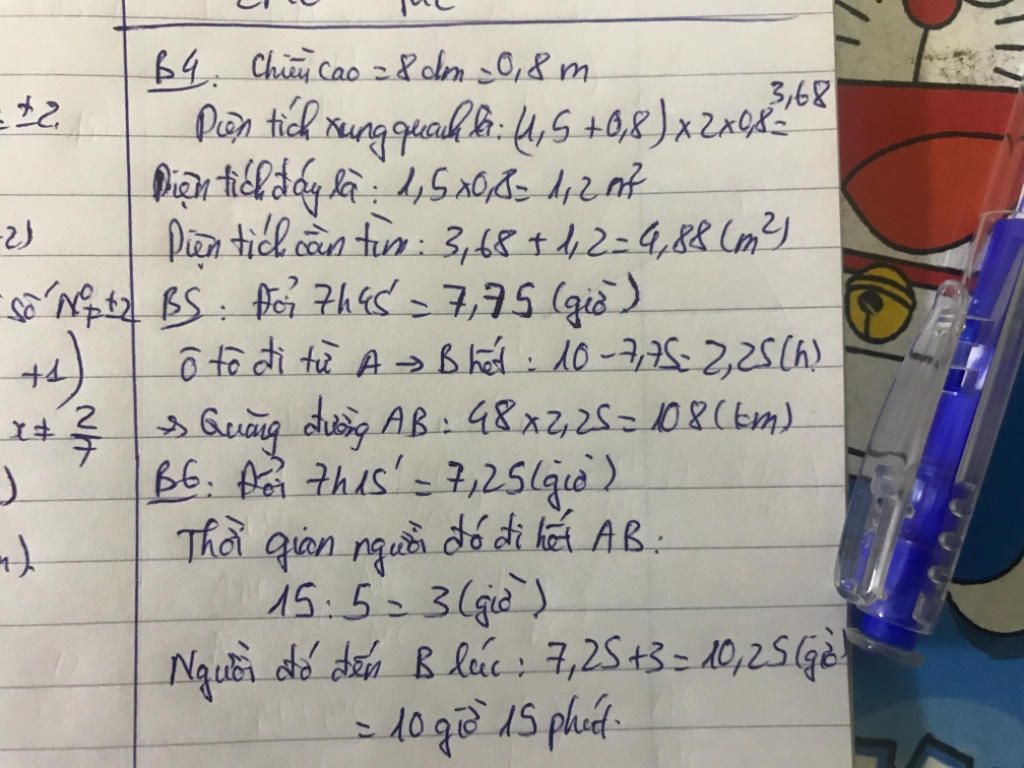 B4. Chiều cao = 8 dm = 0,8 m
3,68
± 2
Diện tích xung quanh là: (1,5 + 0,8) × 2 × 0,8 =
Diện tích đáy là: 1,5 × 0,8 = 1,2 m²
2)
Diện tích cần tìm: 3,68 + 1,2 = 4,88 (m²)
số N⁰
B5: Đổi 7h45' = 7,75 (giờ)
+1)
Ô tô đi từ A → B hết: 10 - 7,75 = 2,25 (h)
x ≠ 2/7
→ Quãng đường AB: 48 × 2,25 = 108 (km)
B6: Đổi 7h15' = 7,25 (giờ)
Thời gian người đó đi hết AB:
15 : 5 = 3 (giờ)
Người đó đến B lúc: 7,25 + 3 = 10,25 (giờ
= 10 giờ 15 phút.